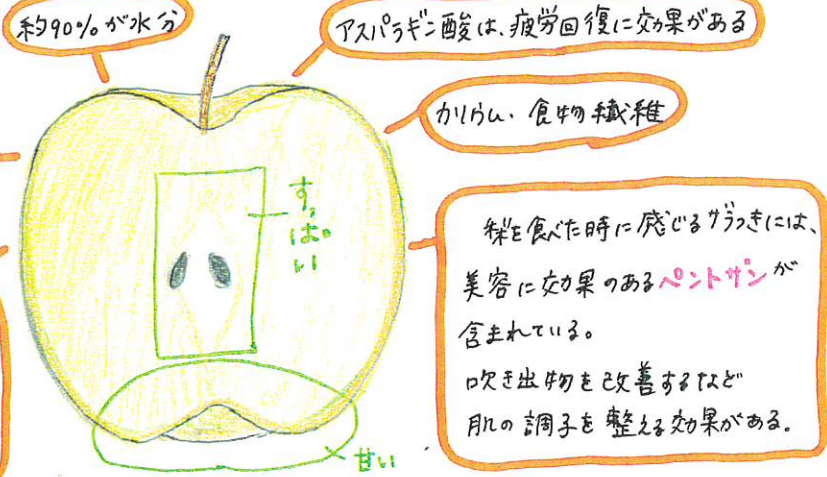 約90%が水分
アスパラギン酸は、疲労回復に効果がある
カリウム・食物繊維
すっぱい
梨を食べた時に感じるザラつきには、
美容に効果のあるペントザンが
含まれている。
吹き出物を改善するなど
肌の調子を整える効果がある。
甘い